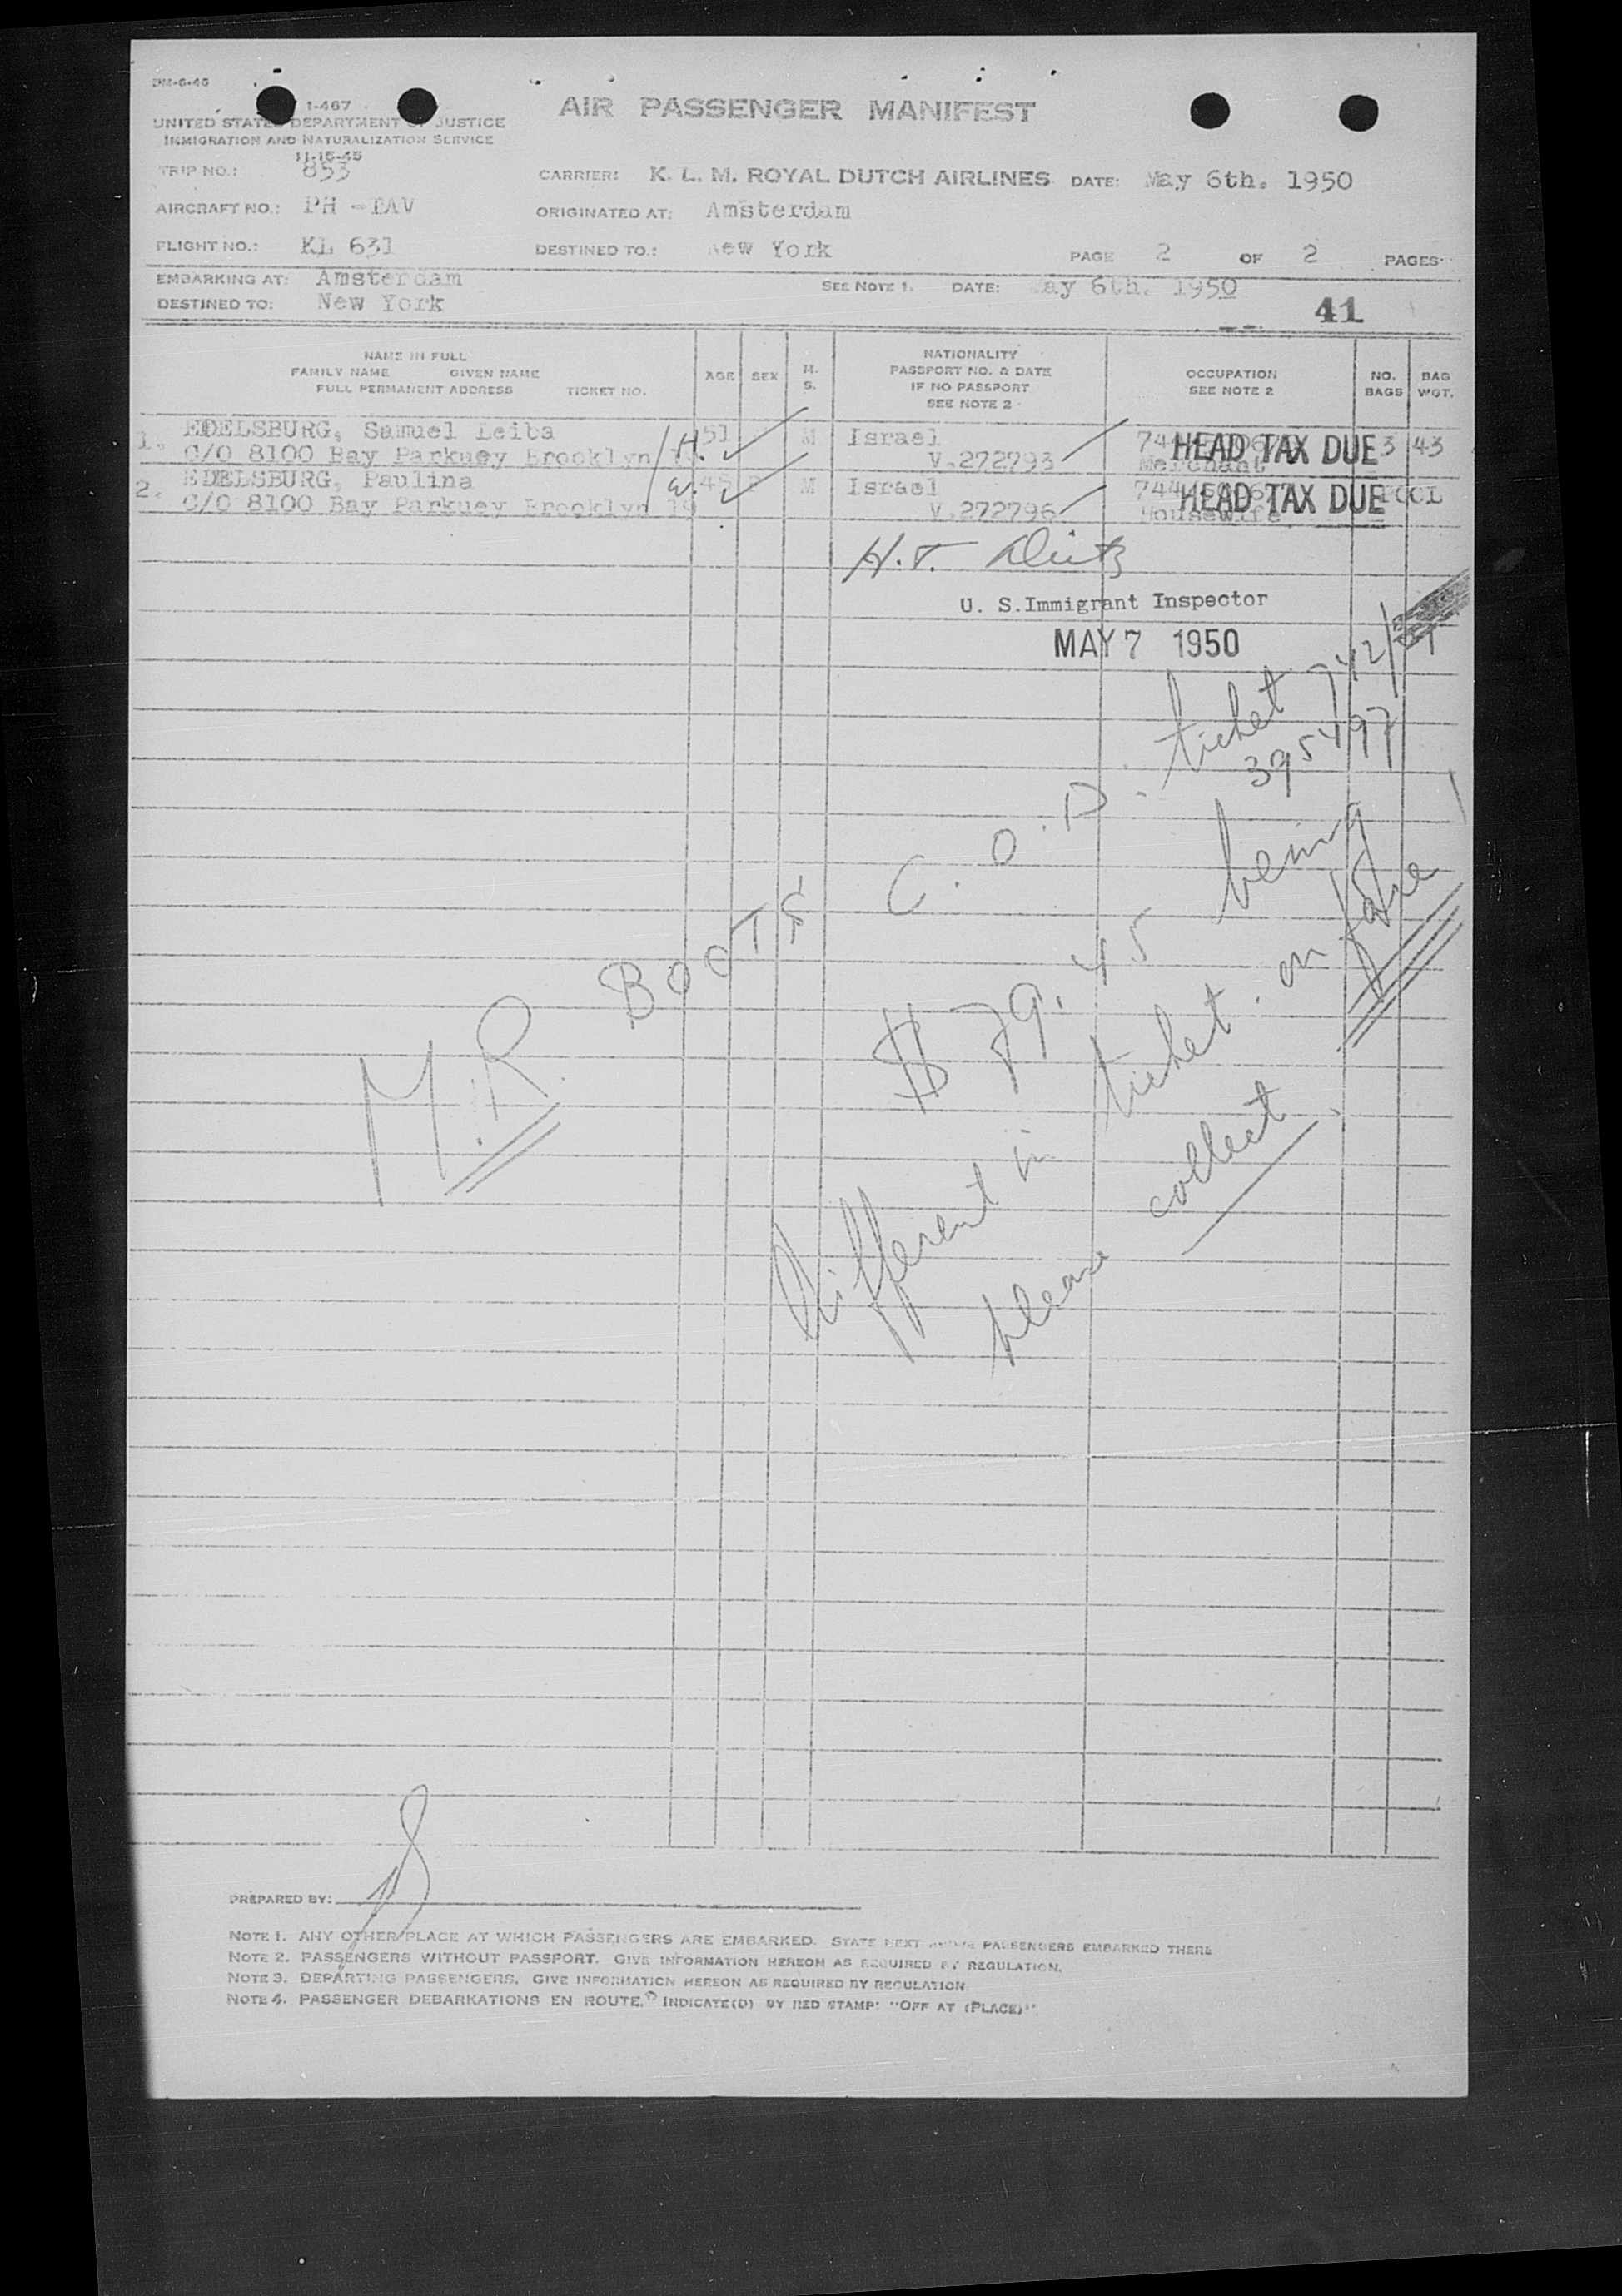 I-467
UNITED STATES DEPARTMENT OF JUSTICE
IMMIGRATION AND NATURALIZATION SERVICE
11-15-45
AIR PASSENGER MANIFEST
TRIP NO.: 853
CARRIER: K. L. M. ROYAL DUTCH AIRLINES DATE: May 6th. 1950
AIRCRAFT NO.: PH -
ORIGINATED AT: Amsterdam
FLIGHT NO.: KL 631
DESTINED TO.: New York
PAGE 2 OF 2 PAGES
EMBARKING AT: Amsterdam
SEE NOTE 1. DATE: May 6th. 1950
DESTINED TO: New York
41
NAME IN FULL
FAMILY NAME GIVEN NAME
FULL PERMANENT ADDRESS TICKET NO.
AGE
SEX
M.
S.
NATIONALITY
PASSPORT NO. & DATE
IF NO PASSPORT
SEE NOTE 2
OCCUPATION
SEE NOTE 2
NO.
BAGS
BAG
WGT.
1. EDELSBURG, Samuel Leiba H. 51 M Israel HEAD TAX DUE 3 43
C/O 8100 Bay Parkuey Brooklyn V.272793 Merchant
2. EDELSBURG, Paulina W. 45 M Israel HEAD TAX DUE
C/O 8100 Bay Parkuey Brooklyn 19 V.272796 Housewife
H.T.
U. S. Immigrant Inspector
MAY 7 1950
M.R. BOOTS C.O.D. ticket
395497
$ 79.45 being
different in ticket. on fare
please collect
PREPARED BY:
NOTE 1. ANY OTHER PLACE AT WHICH PASSENGERS ARE EMBARKED. STATE NEXT PASSENGERS EMBARKED THERE
NOTE 2. PASSENGERS WITHOUT PASSPORT. GIVE INFORMATION HEREON AS REQUIRED BY REGULATION.
NOTE 3. DEPARTING PASSENGERS. GIVE INFORMATION HEREON AS REQUIRED BY REGULATION.
NOTE 4. PASSENGER DEBARKATIONS EN ROUTE. INDICATE(D) BY RED STAMP: "OFF AT (PLACE)"